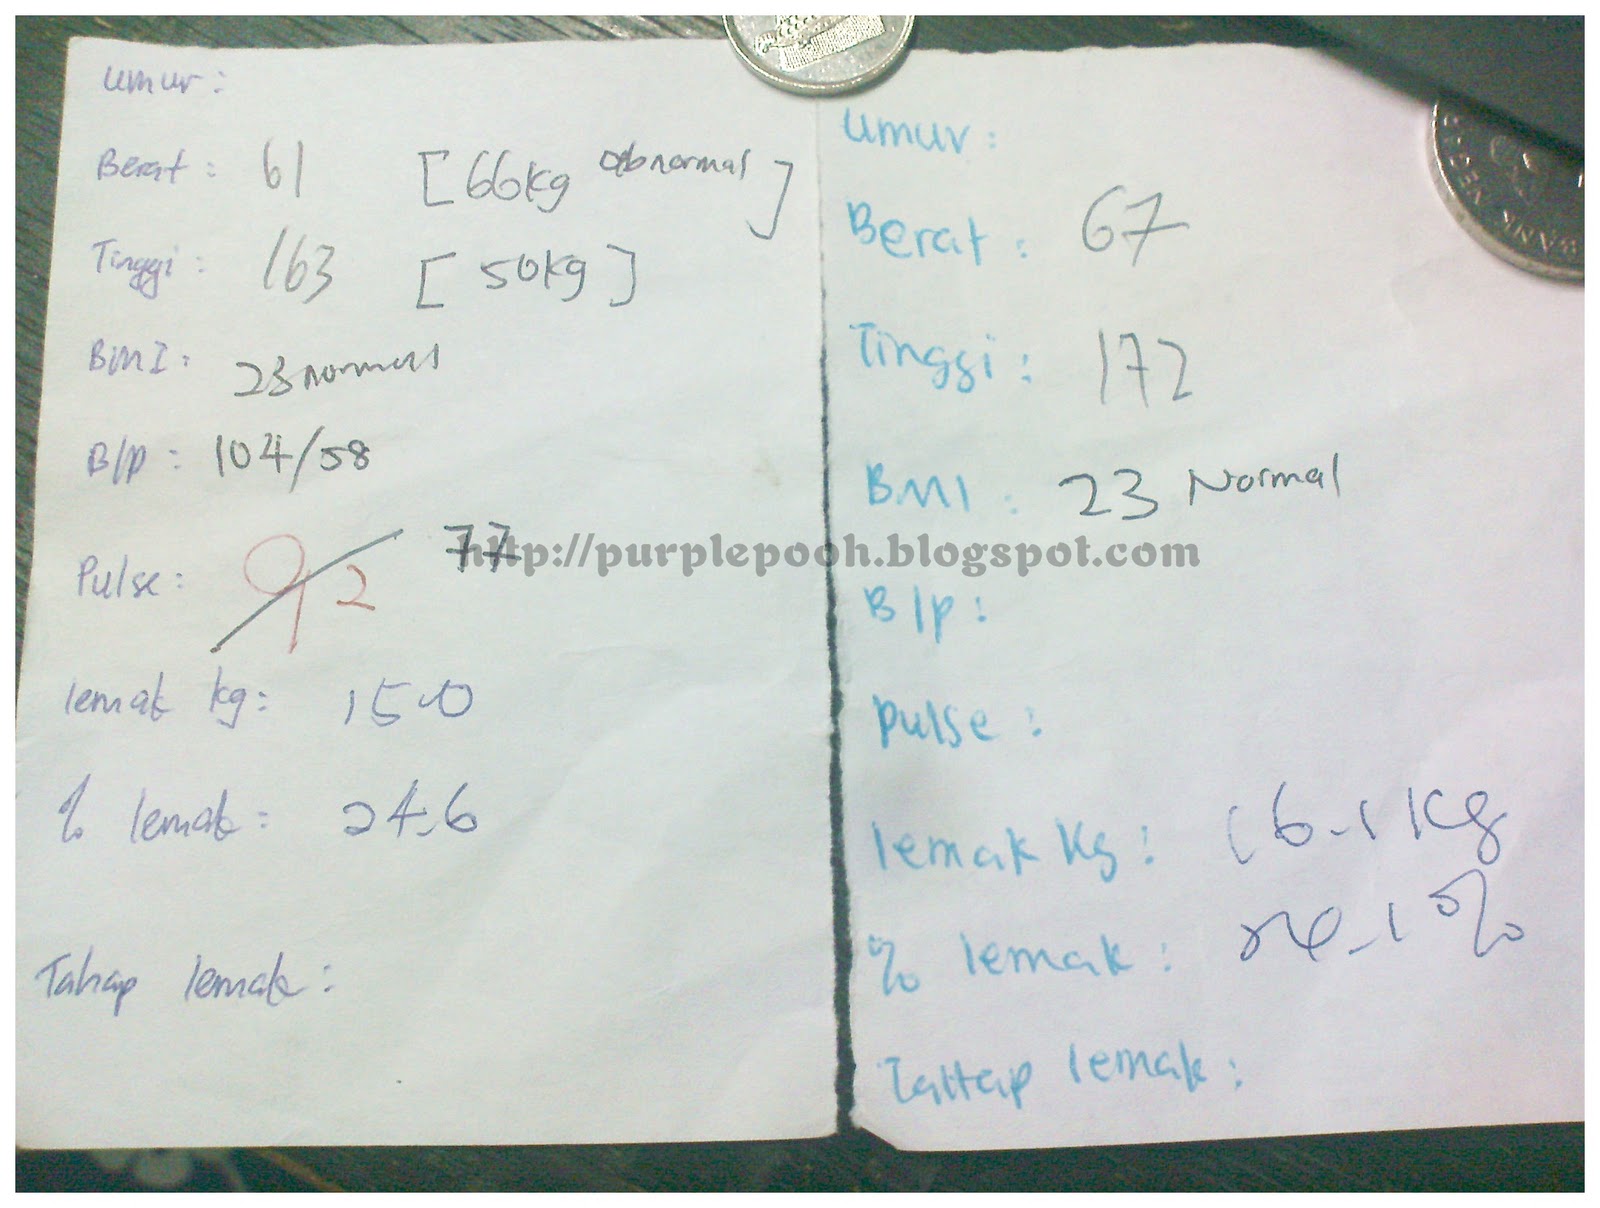 umur :
Berat : 61 [66kg abnormal]
Tinggi : 163 [50kg]
BMI : 23 normal
B/p : 104/58
Pulse : 92 77
lemak kg : 15.0
% lemak : 24.6
Tahap lemak :
umur :
Berat : 67
Tinggi : 172
BMI : 23 Normal
B/p :
pulse :
lemak kg : 16.1 kg
% lemak : 24.1 %
Tahap lemak :
http://purplepooh.blogspot.com
BANK NEGA